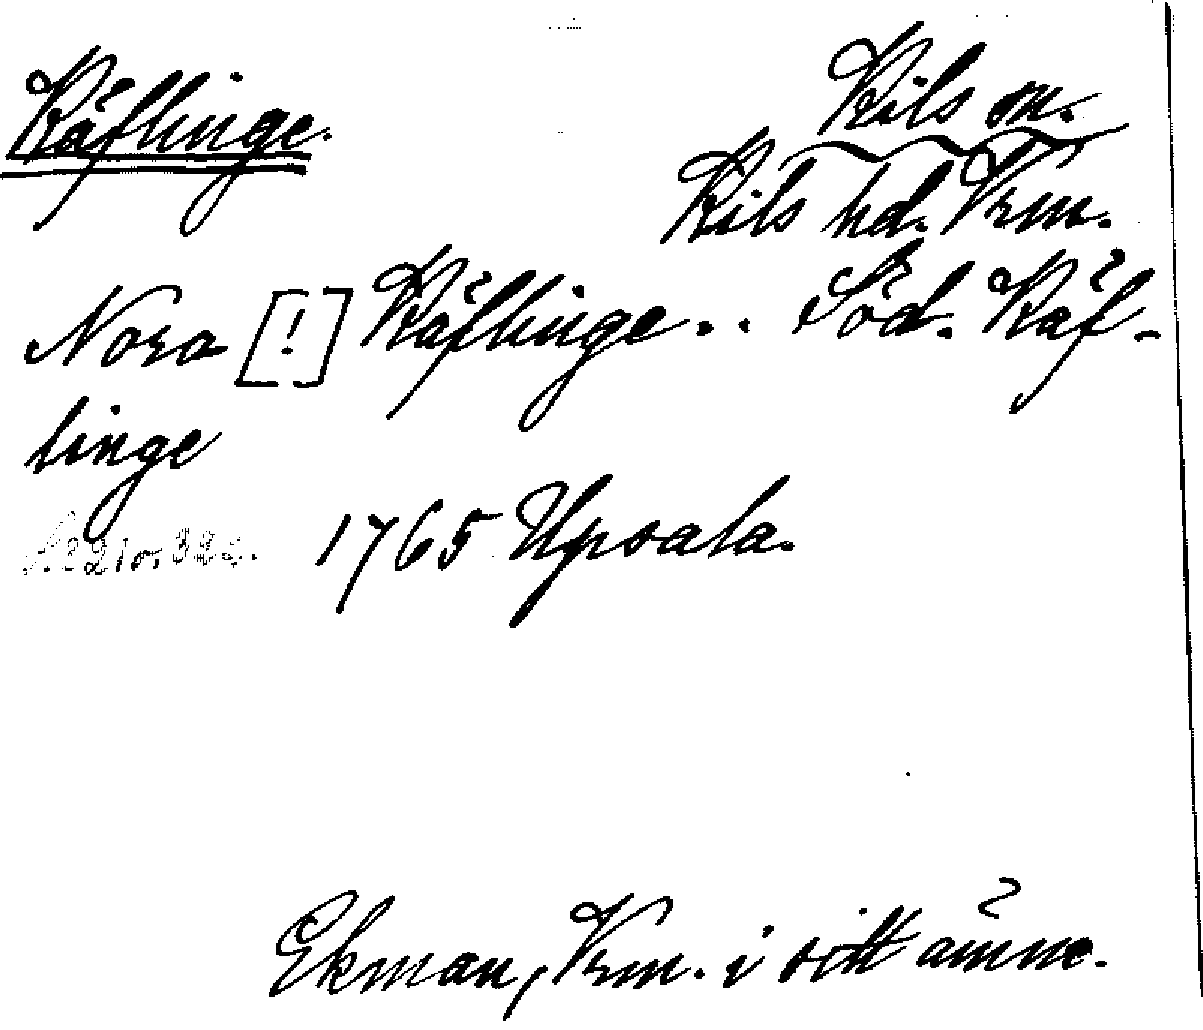 Käflinge.
Kils sn.
Kils hd. Vrm.
Nora [!] Käflinge.. Söd. Käf-
linge
1765 Upsala.
Ekman, Vrm. i sitt ämne.